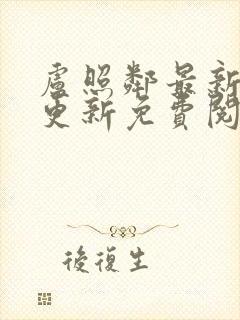 盧照鄰最新
更新免費閱
後復生